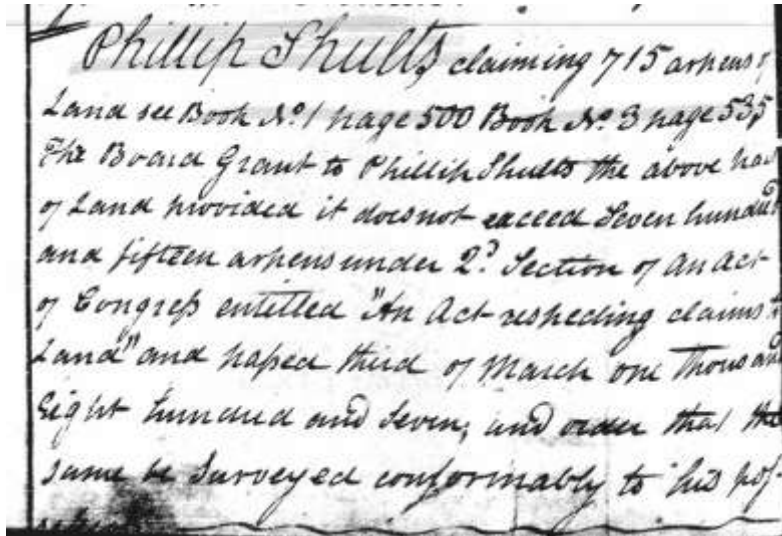 Phillip Shults, claiming 715 arpens of
Land see Book No. 1 page 500 Book No. 3 page 535
The Board Grant to Phillip Shults the above
of Land provided it does not exceed Seven hundred
and fifteen arpens under 2d Section of An Act
of Congress entitled "An Act respecting claims to
Land" and passed third of March one thousand
Eight hundred and Seven; and order that the
same be Surveyed conformably to his pos-